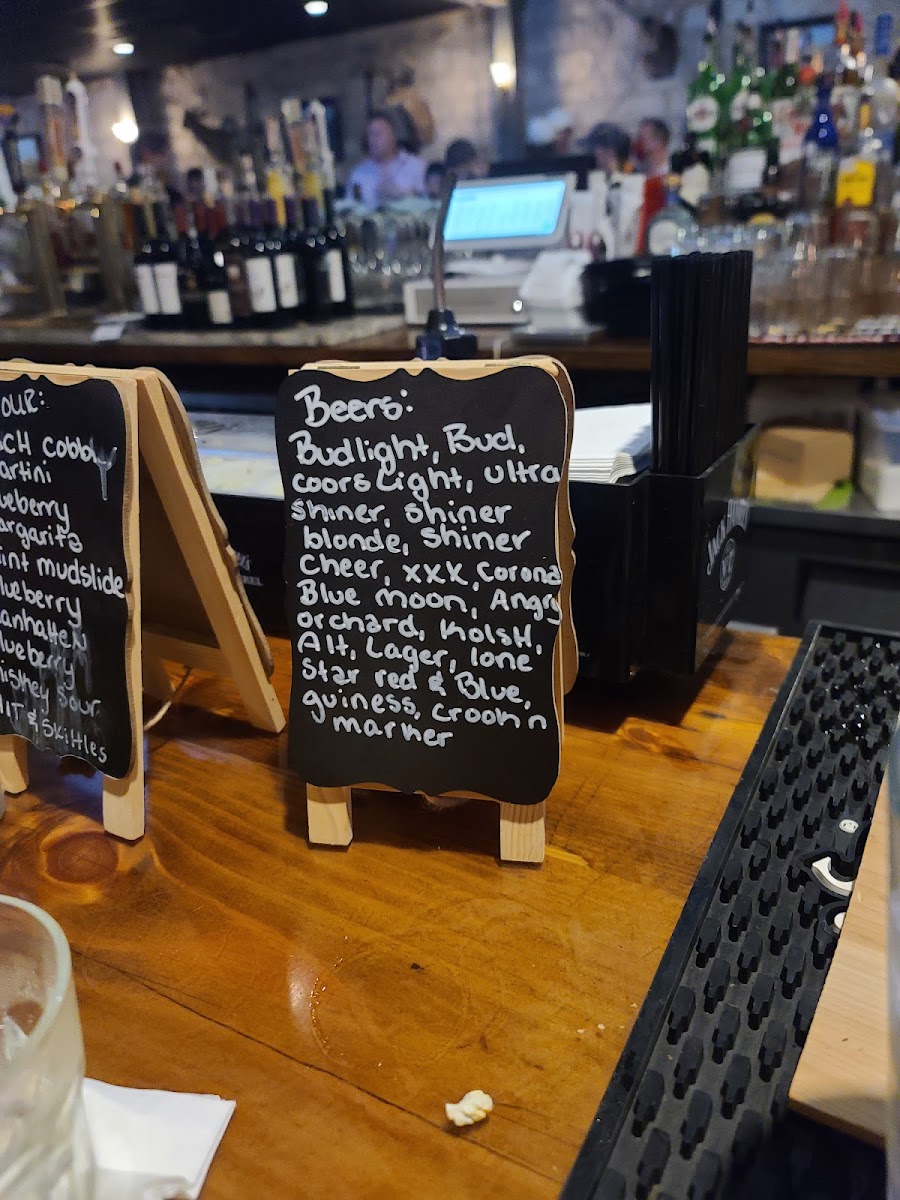 OUR:
CH Cobb
artini
ueberry
argarita
int mudslide
lueberry
anhatten
lueberry
hiskey Sour
IT & Skittles
Beers:
Budlight, Bud,
coors Light, ultra
Shiner, Shiner
blonde, Shiner
Cheer, xxx, Corona
Blue moon, Angry
orchard, Kolsh,
Alt, Lager, lone
Star red & Blue,
guiness, crook n
marker